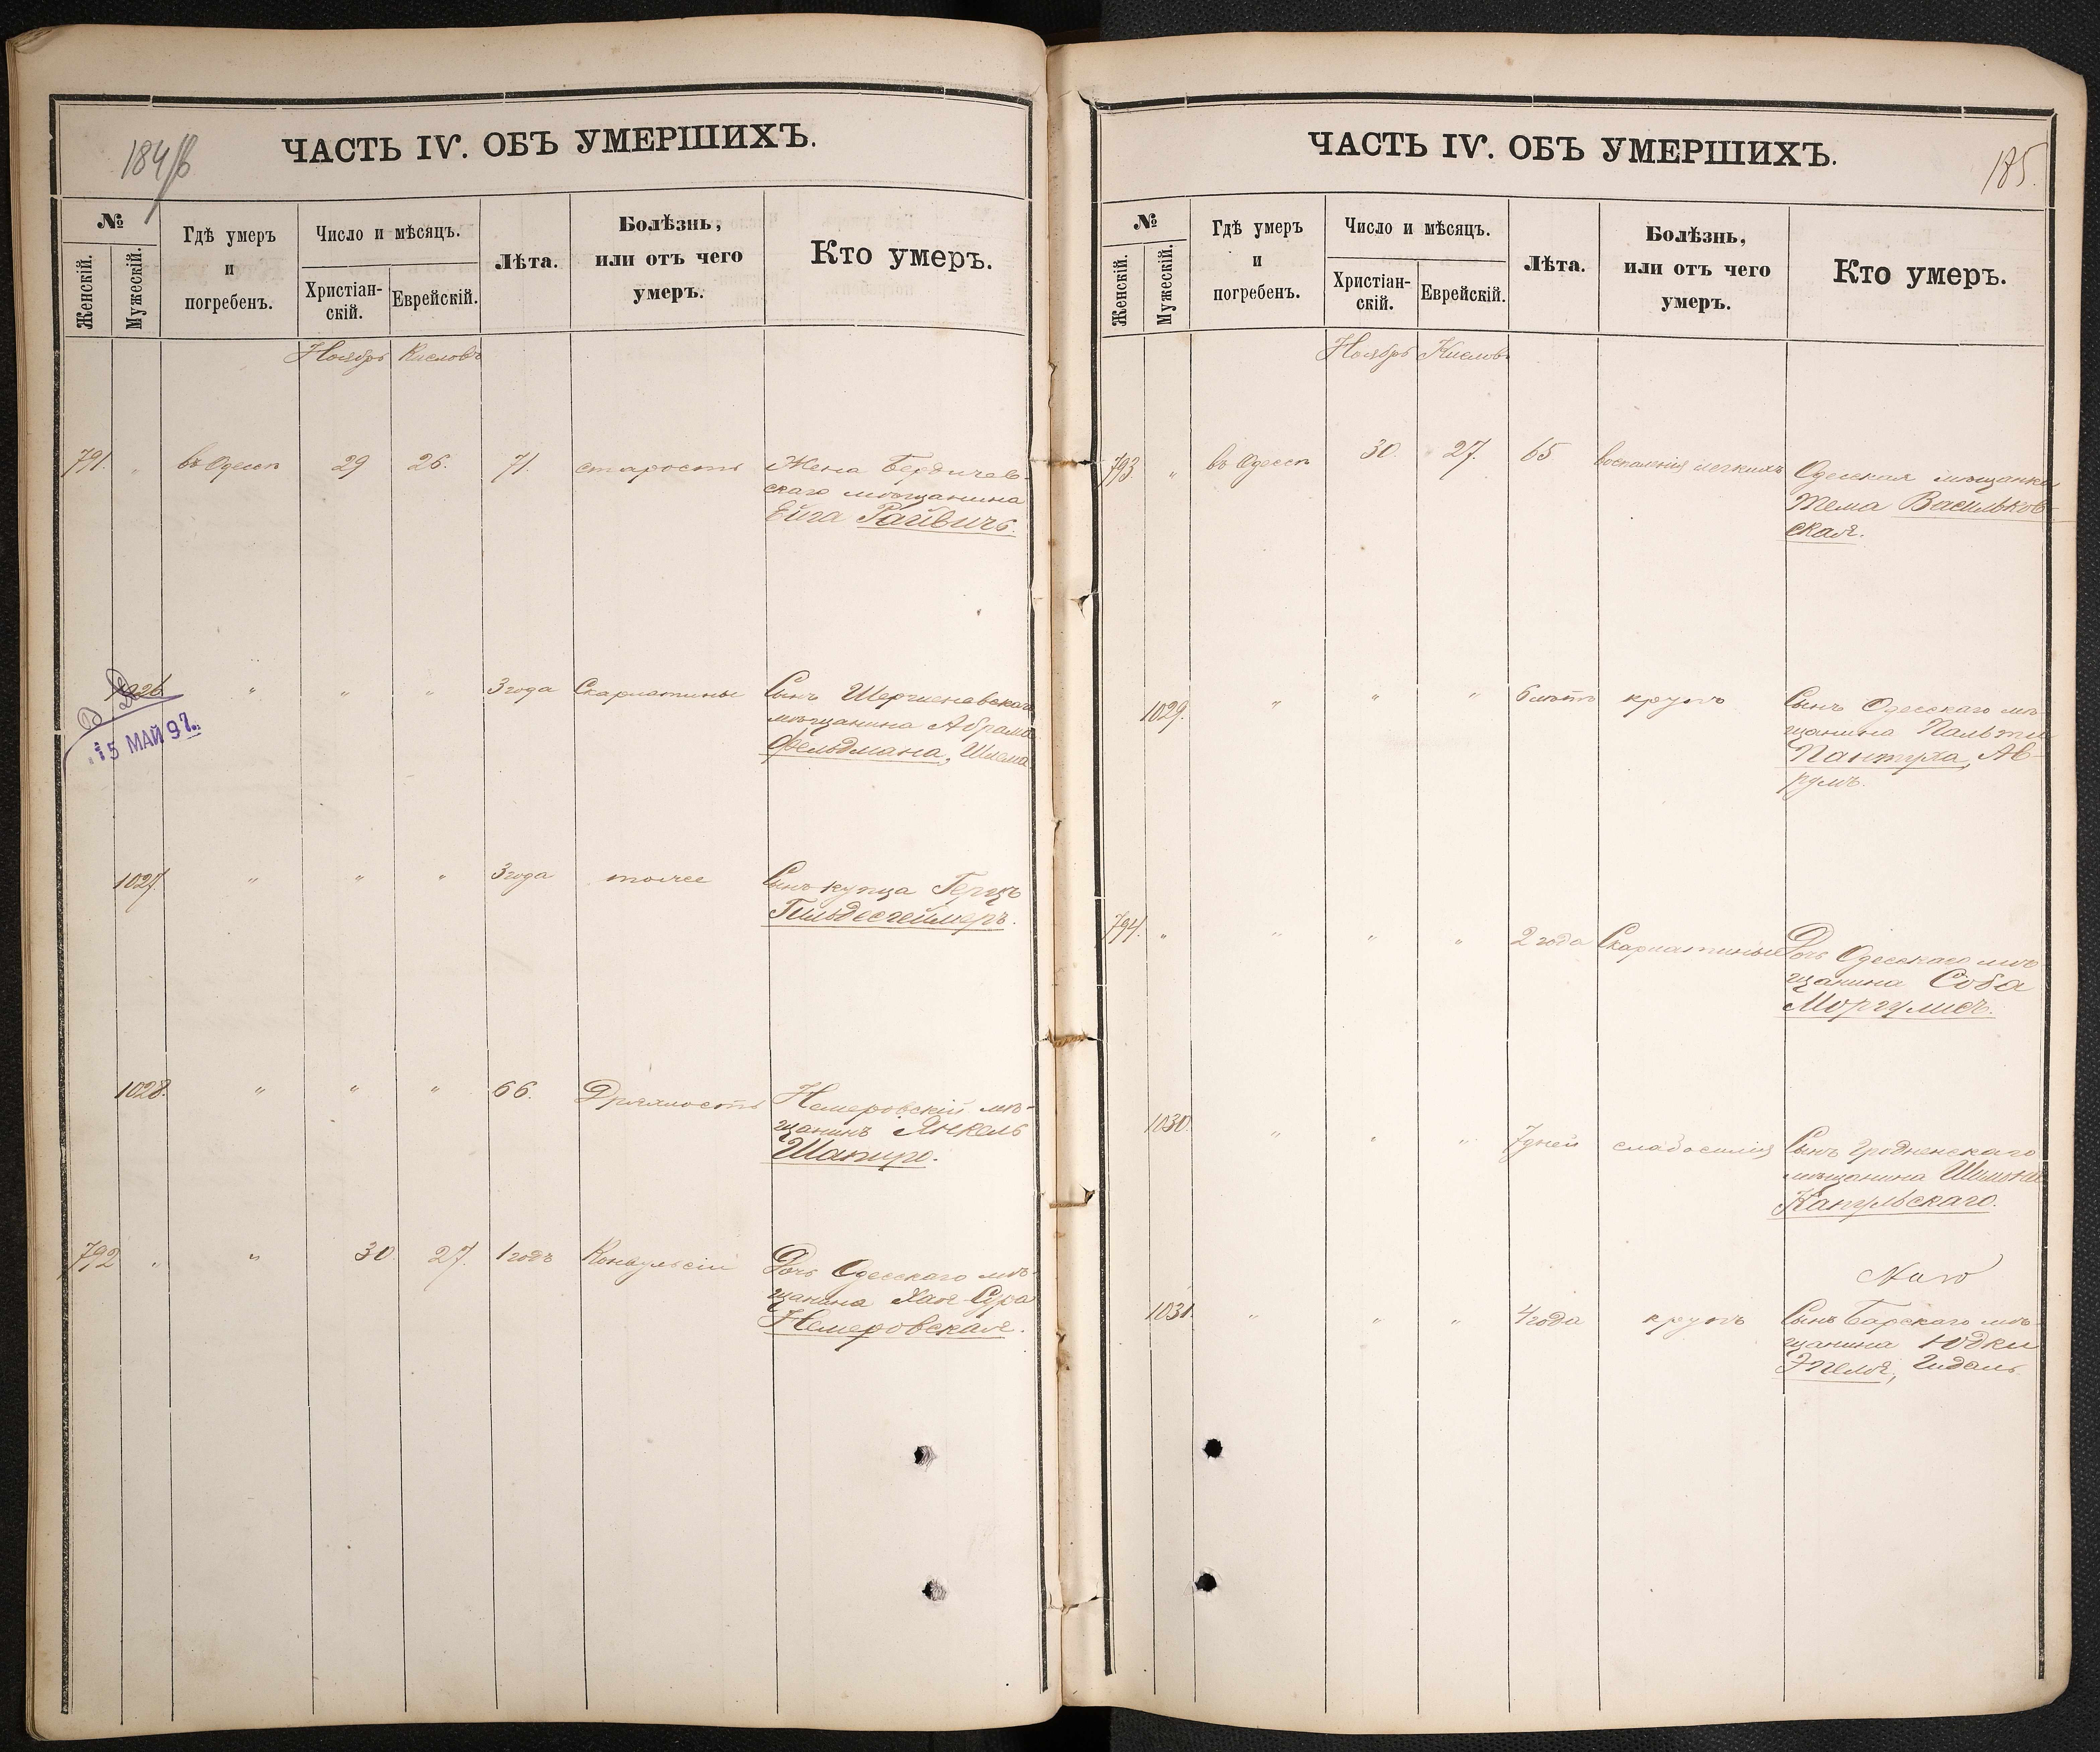 184/б
ЧАСТЬ IV. ОБЪ УМЕРШИХЪ.
№
Женскій.
Мужескій.
Гдѣ умеръ
и
погребенъ.
Число и мѣсяцъ.
Христіан-
скій.
Еврейскій.
Лѣта.
Болѣзнь,
или отъ чего
умеръ.
Кто умеръ.
Ноябрь Кислевъ
791. " въ Одессѣ 29 26. 71. старость Жена Бердичев-
скаго мѣщанина
Ейга Райвичъ.
1026 " " " 3 года Скарлатины Сынъ
мѣщанина Абрама
Фельдмана, Шлема
15 МАЙ 97.
1027. " " " 3 года тоже Сынъ купца Герцъ
Гильдесгеймеръ.
1028. " " " 66. Дряхлость Немеровскій мѣ-
щанинъ Янкель
Шапиро.
792 " " 30. 27. 1 годъ Конвульсіи Дочь Одесскаго мѣ-
щанина Хая-Сура
Немеровская.
ЧАСТЬ IV. ОБЪ УМЕРШИХЪ.
185.
№
Женскій.
Мужескій.
Гдѣ умеръ
и
погребенъ.
Число и мѣсяцъ.
Христіан-
скій.
Еврейскій.
Лѣта.
Болѣзнь,
или отъ чего
умеръ.
Кто умеръ.
Ноябрь Кислевъ
793. " въ Одессѣ 30. 27. 65 воспаленія легкихъ Одесская мѣщанка
Тема Васильков-
ская.
1029. " " " 6 лѣтъ крупъ Сынъ Одесскаго мѣ-
щанина
Пантуха, Ав-
румъ.
794. " " " " 2 года Скарлатины Дочь Одесскаго мѣ-
щанина Соба
Моргулисъ.
1030. " " " 7 дней слабосилія Сынъ Гродненскаго
мѣщанина Шимона
Капульскаго.
1031. " " " 4 года крупъ Сынъ Барскаго мѣ-
щанина Юдки
Эпеля, Гидаль